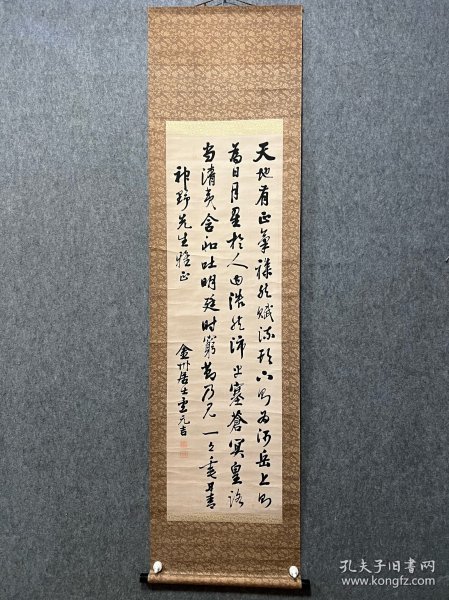 天地有正氣雜然賦流形下則為河岳上則
為日月星於人曰浩然沛乎塞蒼冥皇路
當清夷含和吐明廷時窮節乃見一一垂丹青
神野先生雅正
金州居士元吉
孔夫子旧书网
www.kongfz.com